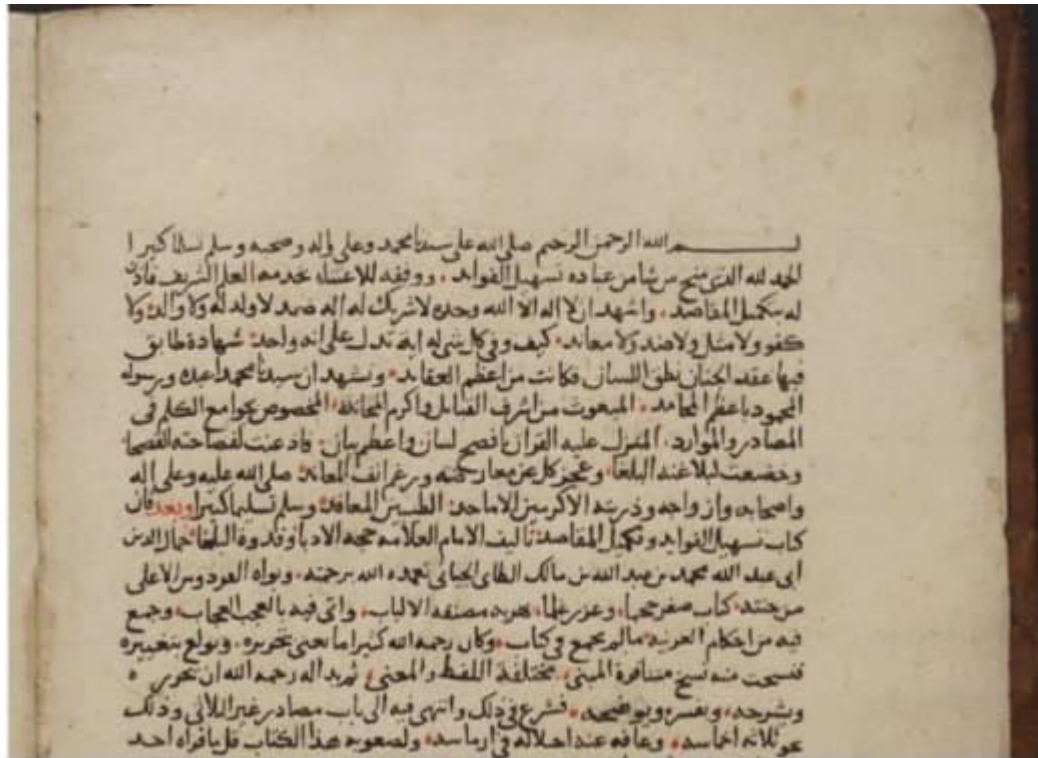 بسم الله الرحمن الرحيم صلى الله على سيدنا محمد وعلى اله وصحبه وسلم تسليما كبيرا
الحمد لله الذى منح من شا من عباده تسهيل الفوايد ووفقه للاعتناء بخدمه العلم الشريف فاذن
له بتكميل المقاصد واشهد ان لا اله الا الله وحده لا شريك له اله صمد لا ولد له ولا والد ولا
كفو ولا مثل ولا ضد ولا معاند كيف وفى كل شى له ايه تدل على انه واحد شهادة طابق
فيها عقد الجنان نطق اللسان فكانت من اعظم العقايد ونشهد ان سيدنا محمدا عبده ورسوله
المحمود باعظم المحامد المبعوث من اشرف القبايل واكرم المخصوص بجوامع الكلم فى
المصادر والموارد المنزل عليه القران بافصح لسان واعظم بيان فاذعنت لفصاحته الفصحا
وخضعت لبلاغته البلغا وعجز كل عن معارضته ورغم انف المعاند صلى الله عليه وعلى اله
واصحابه وازواجه وذريته الاكرمين الاماجد الطيبين المعاقد وسلم تسليما كثيرا وبعد فان
كتاب تسهيل الفوايد وتكميل المقاصد تاليف الامام العلامه حجه الادبا وقدوة البلغا جمال الدين
ابى عبد الله محمد بن عبد الله بن مالك الطاى الجيانى تغمده الله برحمته وبواه الفردوس الاعلى
من جنته كتاب صغر حجما وغزر علما بهر به مصنفه الالباب واتى فيه بالعجب العجاب وجمع
فيه من احكام العربيه ما لم يجمع فى كتاب وكان رحمه الله كثيرا ما يعنى بتحريره ويولع بتغييره
منه نسخ متنافرة المبنى مختلفة اللفظ والمعنى ثم بدا له رحمه الله ان يحرره
ويشرحه ويفسره ويوضحه فشرع فى ذلك وانتهى فيه الى باب مصادر غير الثلاثى وذلك
نحو ثلاثه اخماسه وعاقه عند اجلاله ولصعوبه هذا الكتاب قل ما قراه احد